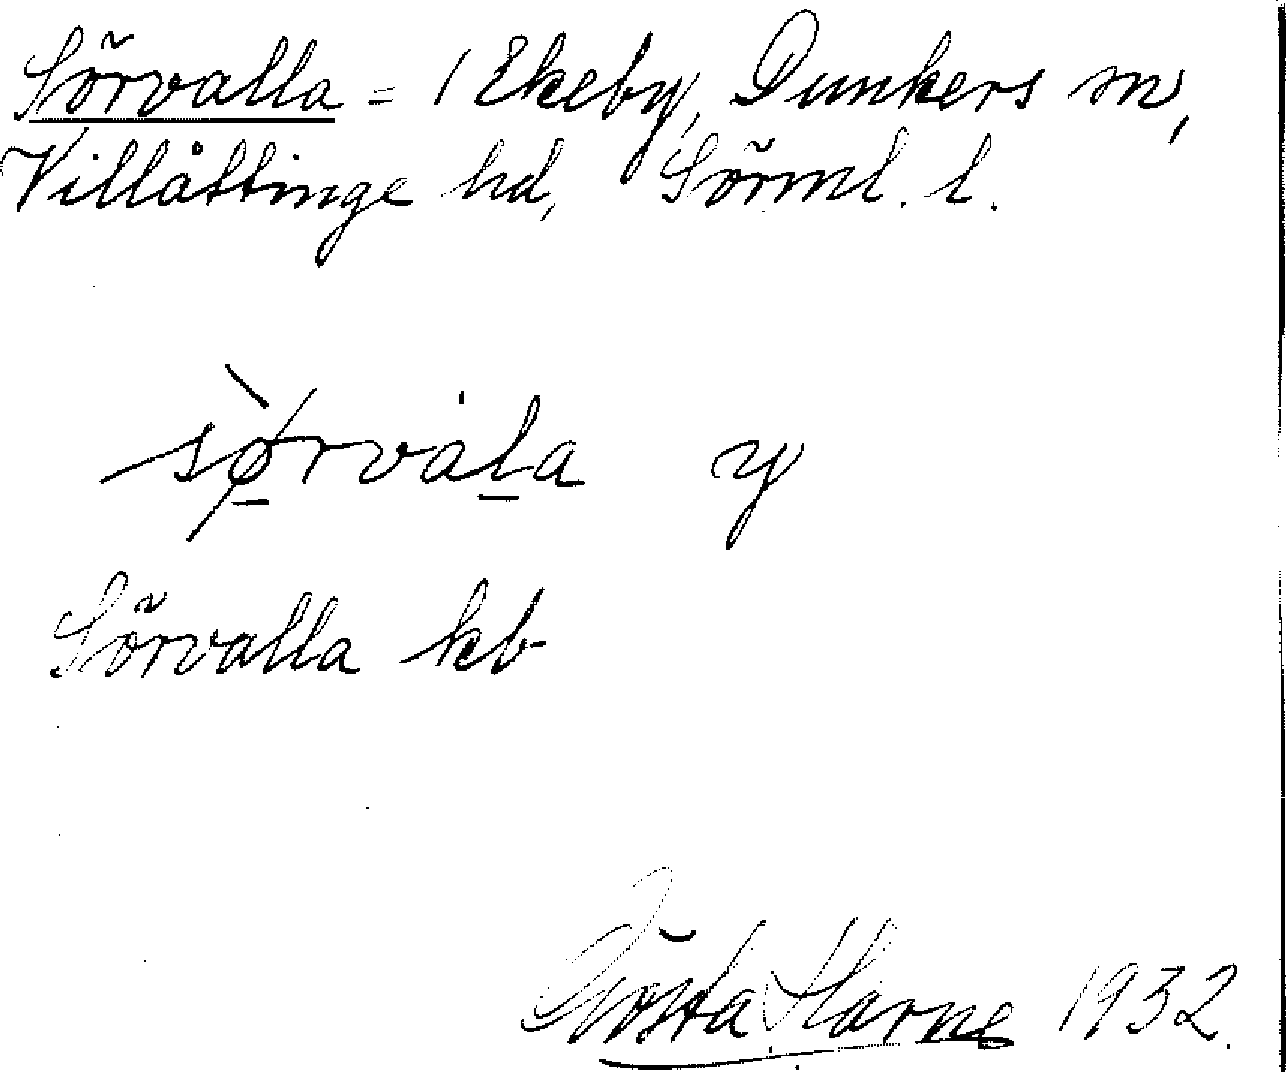 Sörvalla = 1 Ekeby, Dunkers sn,
Villåttinge hd, Sörml. l.
sø̀rvála y
Sörvalla kb
Gösta Harne 1932.